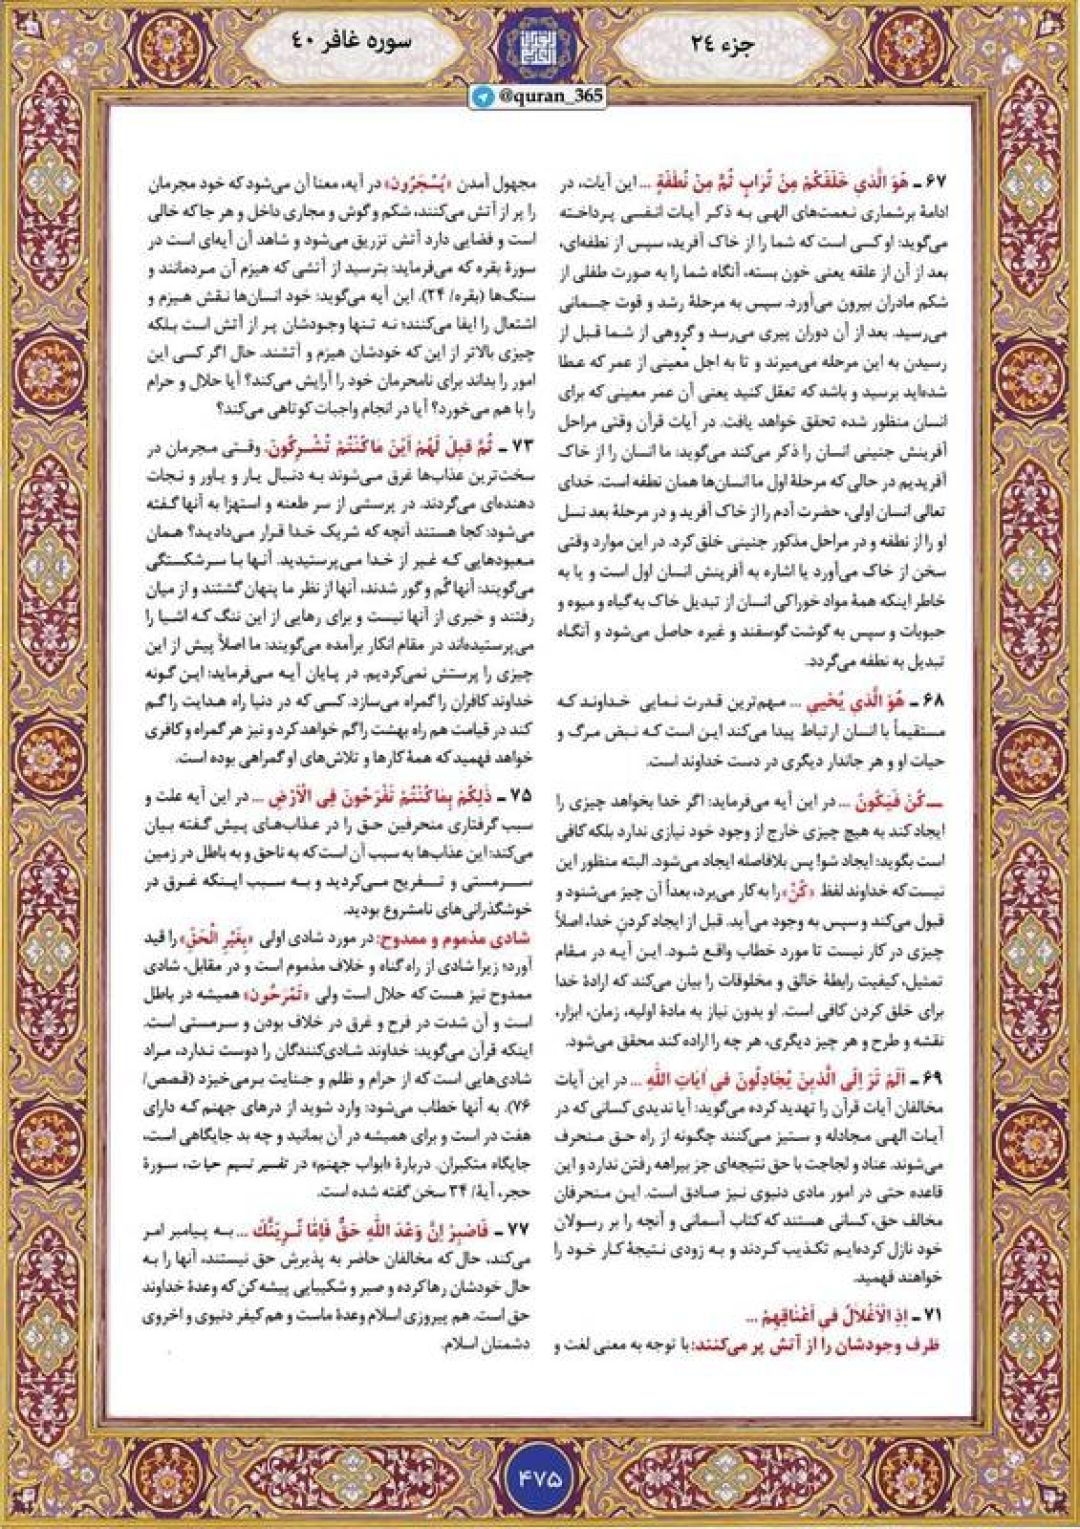 جزء ٢٤
سوره غافر ٤٠
@quran_365
۶۷ ـ هُوَ الَّذي خَلَقَكُمْ مِنْ تُرابٍ ثُمَّ مِنْ نُطْفَةٍ ... این آیات، در
ادامهٔ برشماری نعمت‌های الهی به ذکر آیات انفسی پرداخته
می‌گوید: او کسی است که شما را از خاک آفرید، سپس از نطفه‌ای،
بعد از آن از علقه یعنی خون بسته، آنگاه شما را به صورت طفلی از
شکم مادران بیرون می‌آورد. سپس به مرحلهٔ رشد و قوت جسمانی
می‌رسید. بعد از آن دوران پیری می‌رسد و گروهی از شما قبل از
رسیدن به این مرحله می‌میرند و تا به اجل معینی از عمر که عطا
شده‌اید برسید و باشد که تعقل کنید یعنی آن عمر معینی که برای
انسان منظور شده تحقق خواهد یافت. در آیات قرآن وقتی مراحل
آفرینش جنینی انسان را ذکر می‌کند می‌گوید: ما انسان را از خاک
آفریدیم در حالی که مرحلهٔ اول ما انسان‌ها همان نطفه است. خدای
تعالی انسان اولی، حضرت آدم را از خاک آفرید و در مرحلهٔ بعد نسل
او را از نطفه و در مراحل مذکور جنینی خلق کرد. در این موارد وقتی
سخن از خاک می‌آورد یا اشاره به آفرینش انسان اول است و یا به
خاطر اینکه همهٔ مواد خوراکی انسان از تبدیل خاک به گیاه و میوه و
حبوبات و سپس به گوشت گوسفند و غیره حاصل می‌شود و آنگاه
تبدیل به نطفه می‌گردد.
۶۸ ـ هُوَ الَّذي يُحْيي ... مهم‌ترین قدرت نمایی خداوند که
مستقیماً با انسان ارتباط پیدا می‌کند این است که نبض مرگ و
حیات او و هر جاندار دیگری در دست خداوند است.
ـ كُنْ فَيَكُونُ ... در این آیه می‌فرماید: اگر خدا بخواهد چیزی را
ایجاد کند به هیچ چیزی خارج از وجود خود نیازی ندارد بلکه کافی
است بگوید: ایجاد شو! پس بلافاصله ایجاد می‌شود. البته منظور این
نیست که خداوند لفظ «كُنْ» را به کار می‌برد، بعداً آن چیز می‌شنود و
قبول می‌کند و سپس به وجود می‌آید. قبل از ایجاد کردن خدا، اصلاً
چیزی در کار نیست تا مورد خطاب واقع شود. این آیه در مقام
تمثیل، کیفیت رابطهٔ خالق و مخلوقات را بیان می‌کند که ارادهٔ خدا
برای خلق کردن کافی است. او بدون نیاز به مادهٔ اولیه، زمان، ابزار،
نقشه و طرح و هر چیز دیگری، هر چه را اراده کند محقق می‌شود.
۶۹ ـ اَلَمْ تَرَ اِلَى الَّذينَ يُجادِلُونَ في آياتِ اللهِ ... در این آیات
مخالفان آیات قرآن را تهدید کرده می‌گوید: آیا ندیدی کسانی که در
آیات الهی مجادله و ستیز می‌کنند چگونه از راه حق منحرف
می‌شوند. عناد و لجاجت با حق نتیجه‌ای جز بیراهه رفتن ندارد و این
قاعده حتی در امور مادی دنیوی نیز صادق است. این منحرفان
مخالف حق، کسانی هستند که کتاب آسمانی و آنچه را بر رسولان
خود نازل کرده‌ایم تکذیب کردند و به زودی نتیجهٔ کار خود را
خواهند فهمید.
۷۱ ـ اِذِ الْاَغْلالُ في اَعْناقِهِمْ ...
ظرف وجودشان را از آتش پر می‌کنند: با توجه به معنی لغت و
مجهول آمدن «يُسْجَرُونَ» در آیه، معنا آن می‌شود که خود مجرمان
را پر از آتش می‌کنند، شکم و گوش و مجاری داخل و هر جا که خالی
است و فضایی دارد آتش تزریق می‌شود و شاهد آن آیه‌ای است در
سورهٔ بقره که می‌فرماید: بترسید از آتشی که هیزم آن مردمانند و
سنگ‌ها (بقره/ ۲۴). این آیه می‌گوید: خود انسان‌ها نقش هیزم و
اشتعال را ایفا می‌کنند؛ نه تنها وجودشان پر از آتش است بلکه
چیزی بالاتر از این که خودشان هیزم و آتشند. حال اگر کسی این
امور را بداند برای نامحرمان خود را آرایش می‌کند؟ آیا حلال و حرام
را با هم می‌خورد؟ آیا در انجام واجبات کوتاهی می‌کند؟
۷۳ ـ ثُمَّ قيلَ لَهُمْ اَيْنَ ما كُنْتُمْ تُشْرِكُونَ. وقتی مجرمان در
سخت‌ترین عذاب‌ها غرق می‌شوند به دنبال یار و یاور و نجات
دهنده‌ای می‌گردند. در پرسشی از سر طعنه و استهزا به آنها گفته
می‌شود: کجا هستند آنچه که شریک خدا قرار می‌دادید؟ همان
معبودهایی که غیر از خدا می‌پرستیدید. آنها با سرشکستگی
می‌گویند: آنها گُم و گور شدند، آنها از نظر ما پنهان گشتند و از میان
رفتند و خبری از آنها نیست و برای رهایی از این ننگ که اشیا را
می‌پرستیده‌اند در مقام انکار برآمده می‌گویند: ما اصلاً پیش از این
چیزی را پرستش نمی‌کردیم. در پایان آیه می‌فرماید: این گونه
خداوند کافران را گمراه می‌سازد. کسی که در دنیا راه هدایت را گم
کند در قیامت هم راه بهشت را گم خواهد کرد و نیز هر گمراه و کافری
خواهد فهمید که همهٔ کارها و تلاش‌های او گمراهی بوده است.
۷۵ ـ ذٰلِكُمْ بِما كُنْتُمْ تَفْرَحُونَ فِي الْاَرْضِ ... در این آیه علت و
سبب گرفتاری منحرفین حق را در عذاب‌های پیش گفته بیان
می‌کند: این عذاب‌ها به سبب آن است که به ناحق و به باطل در زمین
سرمستی و تفریح می‌کردید و به سبب اینکه غرق در
خوشگذرانی‌های نامشروع بودید.
شادی مذموم و ممدوح: در مورد شادی اولی «بِغَيْرِ الْحَقِّ» را قید
آورد؛ زیرا شادی از راه گناه و خلاف مذموم است و در مقابل، شادی
ممدوح نیز هست که حلال است ولی «تَمْرَحُون» همیشه در باطل
است و آن شدت در فرح و غرق در خلاف بودن و سرمستی است.
اینکه قرآن می‌گوید: خداوند شادی‌کنندگان را دوست ندارد، مراد
شادی‌هایی است که از حرام و ظلم و جنایت برمی‌خیزد (قصص/
۷۶). به آنها خطاب می‌شود: وارد شوید از درهای جهنم که دارای
هفت در است و برای همیشه در آن بمانید و چه بد جایگاهی است،
جایگاه متکبران. دربارهٔ «ابواب جهنم» در تفسیر نسیم حیات، سورهٔ
حجر، آیهٔ/ ۳۴ سخن گفته شده است.
۷۷ ـ فَاصْبِرْ اِنَّ وَعْدَ اللهِ حَقٌّ فَاِمّا نُرِيَنَّكَ ... به پیامبر امر
می‌کند، حال که مخالفان حاضر به پذیرش حق نیستند، آنها را به
حال خودشان رها کرده و صبر و شکیبایی پیشه کن که وعدهٔ خداوند
حق است. هم پیروزی اسلام وعدهٔ ماست و هم کیفر دنیوی و اخروی
دشمنان اسلام.
۴۷۵